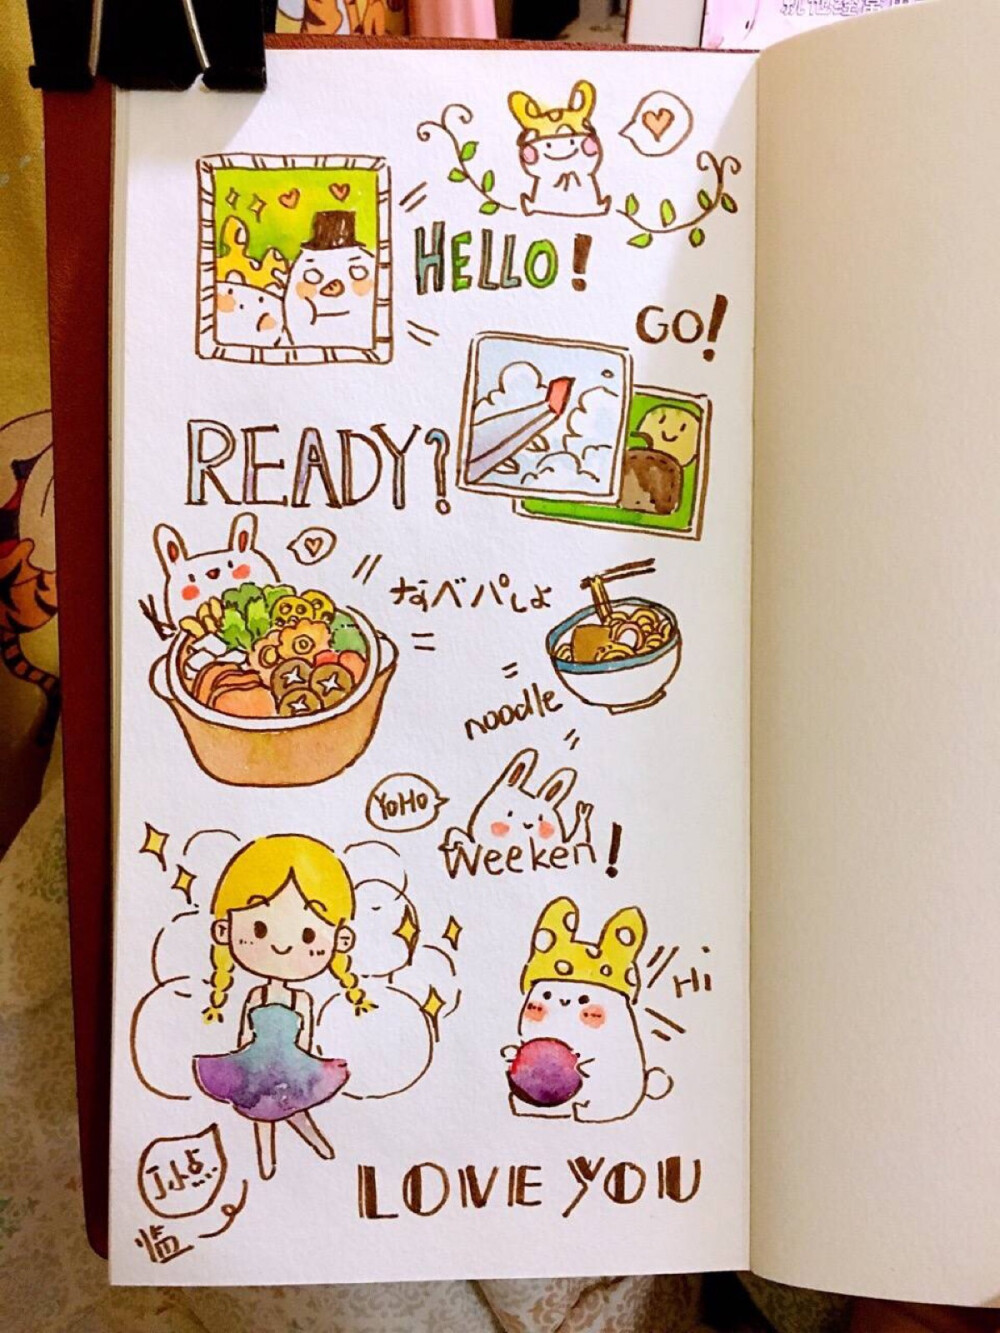 HELLO!
GO!
READY?
なべパしよ
noodle
YoHo
Weeken!
Hi
LOVE YOU